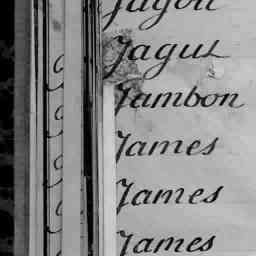 Jagou
Jagut
Jambon
James
James
James